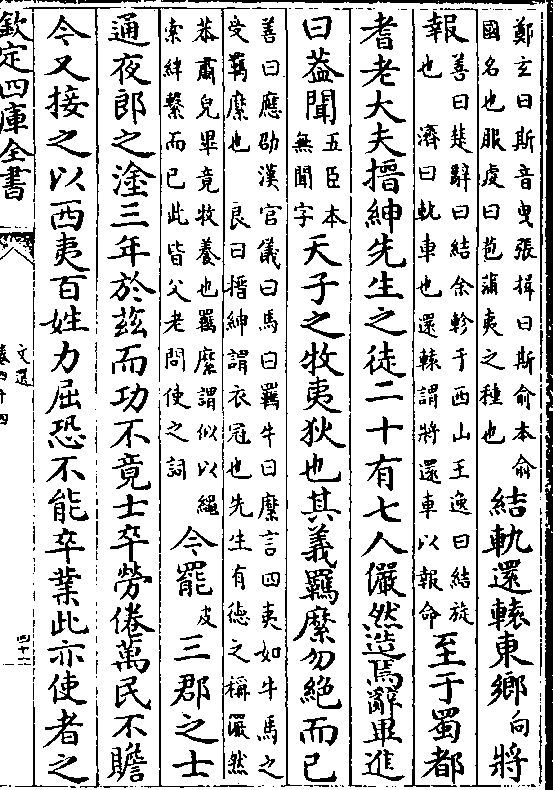 鄭玄曰斯音曳張揖曰斯俞本俞
國名也服虔曰苞蒲夷之種也
結軌還轅東鄉向將
報善曰楚辭曰結余軫于西山王逸曰結旋
也 濟曰軌車也還轅謂將還車以報命
至于蜀都
耆老大夫搢紳先生之徒二十有七人儼然造焉辭畢進
曰葢聞五臣本
無聞字
天子之牧夷狄也其義羈縻勿絕而已
善曰應劭漢官儀曰馬曰羈牛曰縻言四夷如牛馬之
受羈縻也 良曰搢紳謂衣冠也先生有徳之稱儼然
恭肅皃畢竟牧養也羈縻謂似以繩
索絆繫而已此皆父老問使之詞
今罷皮三郡之士
通夜郎之塗三年於兹而功不竟士卒勞倦萬民不贍
今又接之以西夷百姓力屈恐不能卒業此亦使者之
欽定四庫全書
文選
卷四十四